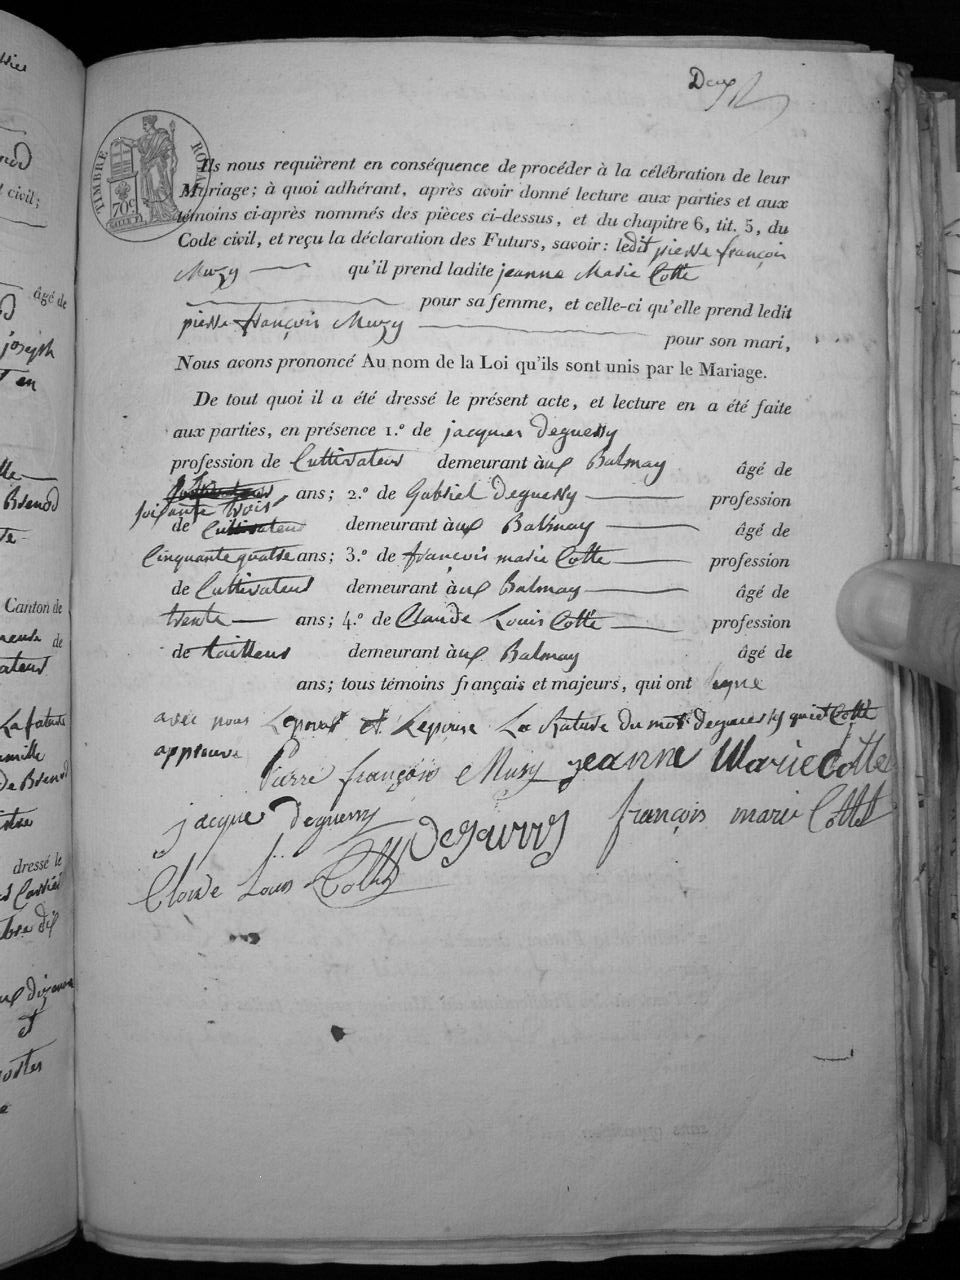 Deux
TIMBRE ROYAL
70c
Ils nous requièrent en conséquence de procéder à la célébration de leur
Mariage; à quoi adhérant, après avoir donné lecture aux parties et aux
témoins ci-après nommés des pièces ci-dessus, et du chapitre 6, tit. 5, du
Code civil, et reçu la déclaration des Futurs, savoir: ledit pierre françois
Muzy qu'il prend ladite jeanne Marie Cotte
pour sa femme, et celle-ci qu'elle prend ledit
pierre françois Muzy pour son mari,
Nous avons prononcé Au nom de la Loi qu'ils sont unis par le Mariage.
De tout quoi il a été dressé le présent acte, et lecture en a été faite
aux parties, en présence 1.º de jacques deguerry
profession de Cultivateur demeurant aux Balmay âgé de
soixante trois ans; 2.º de Gabriel deguerry profession
de Cultivateur demeurant aux Balmay âgé de
Cinquante quatre ans; 3.º de françois marie Cotte profession
de Cultivateur demeurant aux Balmay âgé de
trente ans; 4.º de Claude Louis Cotte profession
de tailleur demeurant aux Balmay âgé de
ans; tous témoins français et majeurs, qui ont signé
avec nous Lepoux et Lepouse La du mot deguerry Cotte
approuvé
Pierre françois Muzy jeanne Marie Cotte
jacque deguerry Deguerry françois marie Cottet
Claude Louis Cottet
civil;
âgé de
joseph
en
Brenod
Canton de
de
dressé le
et